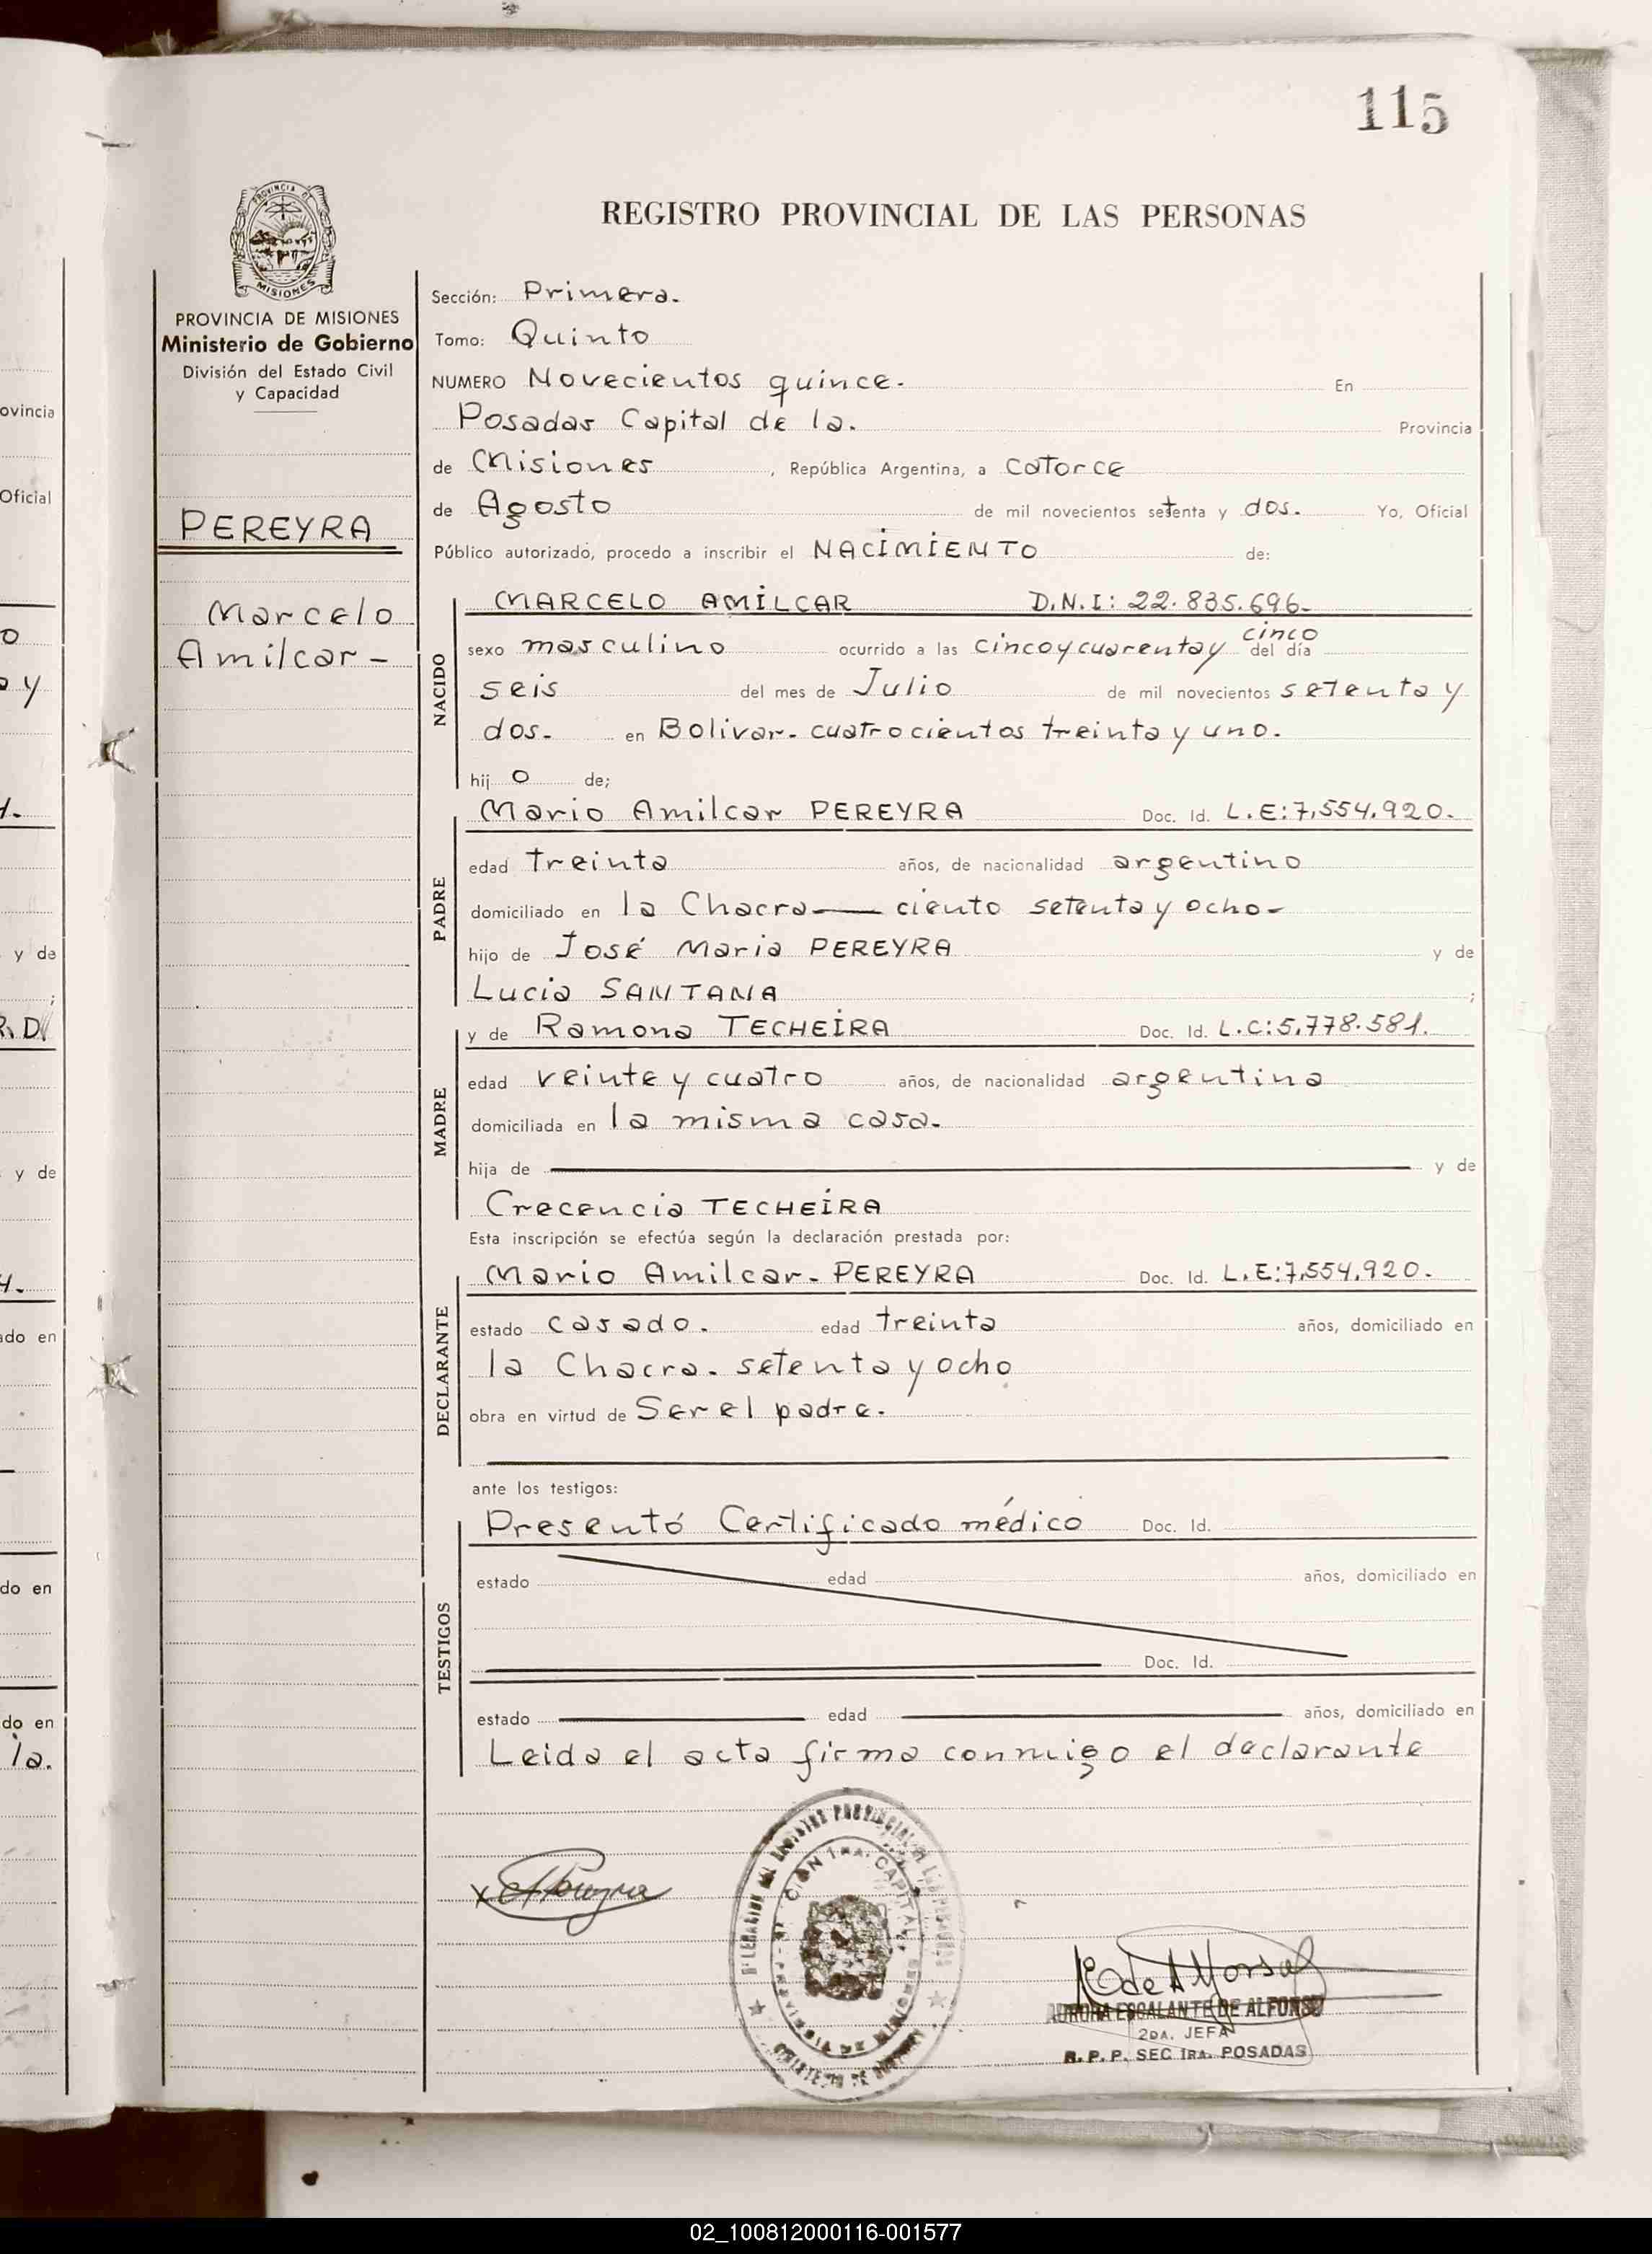 115
REGISTRO PROVINCIAL DE LAS PERSONAS
PROVINCIA DE
MISIONES
PROVINCIA DE MISIONES
Ministerio de Gobierno
División del Estado Civil
y Capacidad
PEREYRA
Marcelo
Amilcar -
Sección: Primera.
Tomo: Quinto
NUMERO Novecientos quince. En
Posadas Capital de la. Provincia
de Misiones, República Argentina, a catorce
de Agosto de mil novecientos setenta y dos. Yo, Oficial
Público autorizado, procedo a inscribir el NACIMIENTO de:
NACIDO
MARCELO AMILCAR D.N.I: 22.835.696-
sexo masculino ocurrido a las cinco y cuarenta y cinco del día
seis del mes de Julio de mil novecientos setenta y
dos. en Bolivar. cuatrocientos treinta y uno.
hij o de;
PADRE
Mario Amilcar PEREYRA Doc. Id. L.E:7,554,920.
edad treinta años, de nacionalidad argentino
domiciliado en la Chacra — ciento setenta y ocho-
hijo de José Maria PEREYRA y de
Lucia SANTANA ;
MADRE
y de Ramona TECHEIRA Doc. Id. L.C:5,778.581.
edad veinte y cuatro años, de nacionalidad argentina
domiciliada en la misma casa.
hija de y de
Crecencia TECHEIRA
Esta inscripción se efectúa según la declaración prestada por:
DECLARANTE
Mario Amilcar. PEREYRA Doc. Id. L.E:7,554,920.
estado casado. edad treinta años, domiciliado en
la Chacra. setenta y ocho
obra en virtud de Ser el padre.
ante los testigos:
TESTIGOS
Presentó Certificado médico Doc. Id.
estado edad años, domiciliado en
Doc. Id.
estado edad años, domiciliado en
Leida el acta firma conmigo el declarante
AURORA ESCALANTE DE ALFONSO
2DA. JEFA
R.P.P. SEC 1RA. POSADAS
ovincia
Oficial
o
y
y de
;
R.D.
y de
ado en
do en
do en
la.
02_100812000116-001577